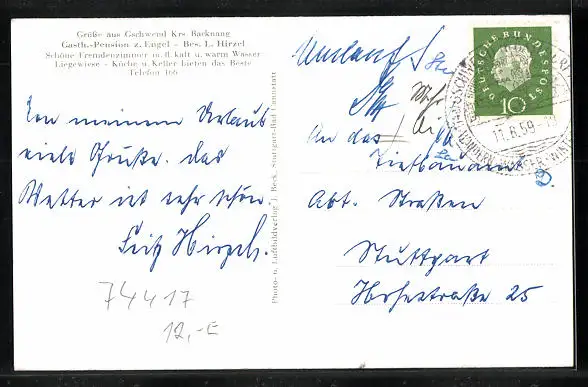 Grüße aus Gschwend Krs. Backnang
Gasth.-Pension z. Engel – Bes. L. Hirzel
Schöne Fremdenzimmer m. fl. kalt u. warm Wasser
Liegewiese – Küche u. Keller bieten das Beste
Telefon 166
Von meinem Urlaub
viele Grüße. das
Wetter ist sehr schön.
Fritz
74417
12,-E
Photo- u. Luftbildverlag J. Beck, Stuttgart-Bad Cannstatt
DEUTSCHE BUNDESPOST
10
11.6.59
Umlauf
An das
Tiefbauamt
Abt. Straßen
Stuttgart
25